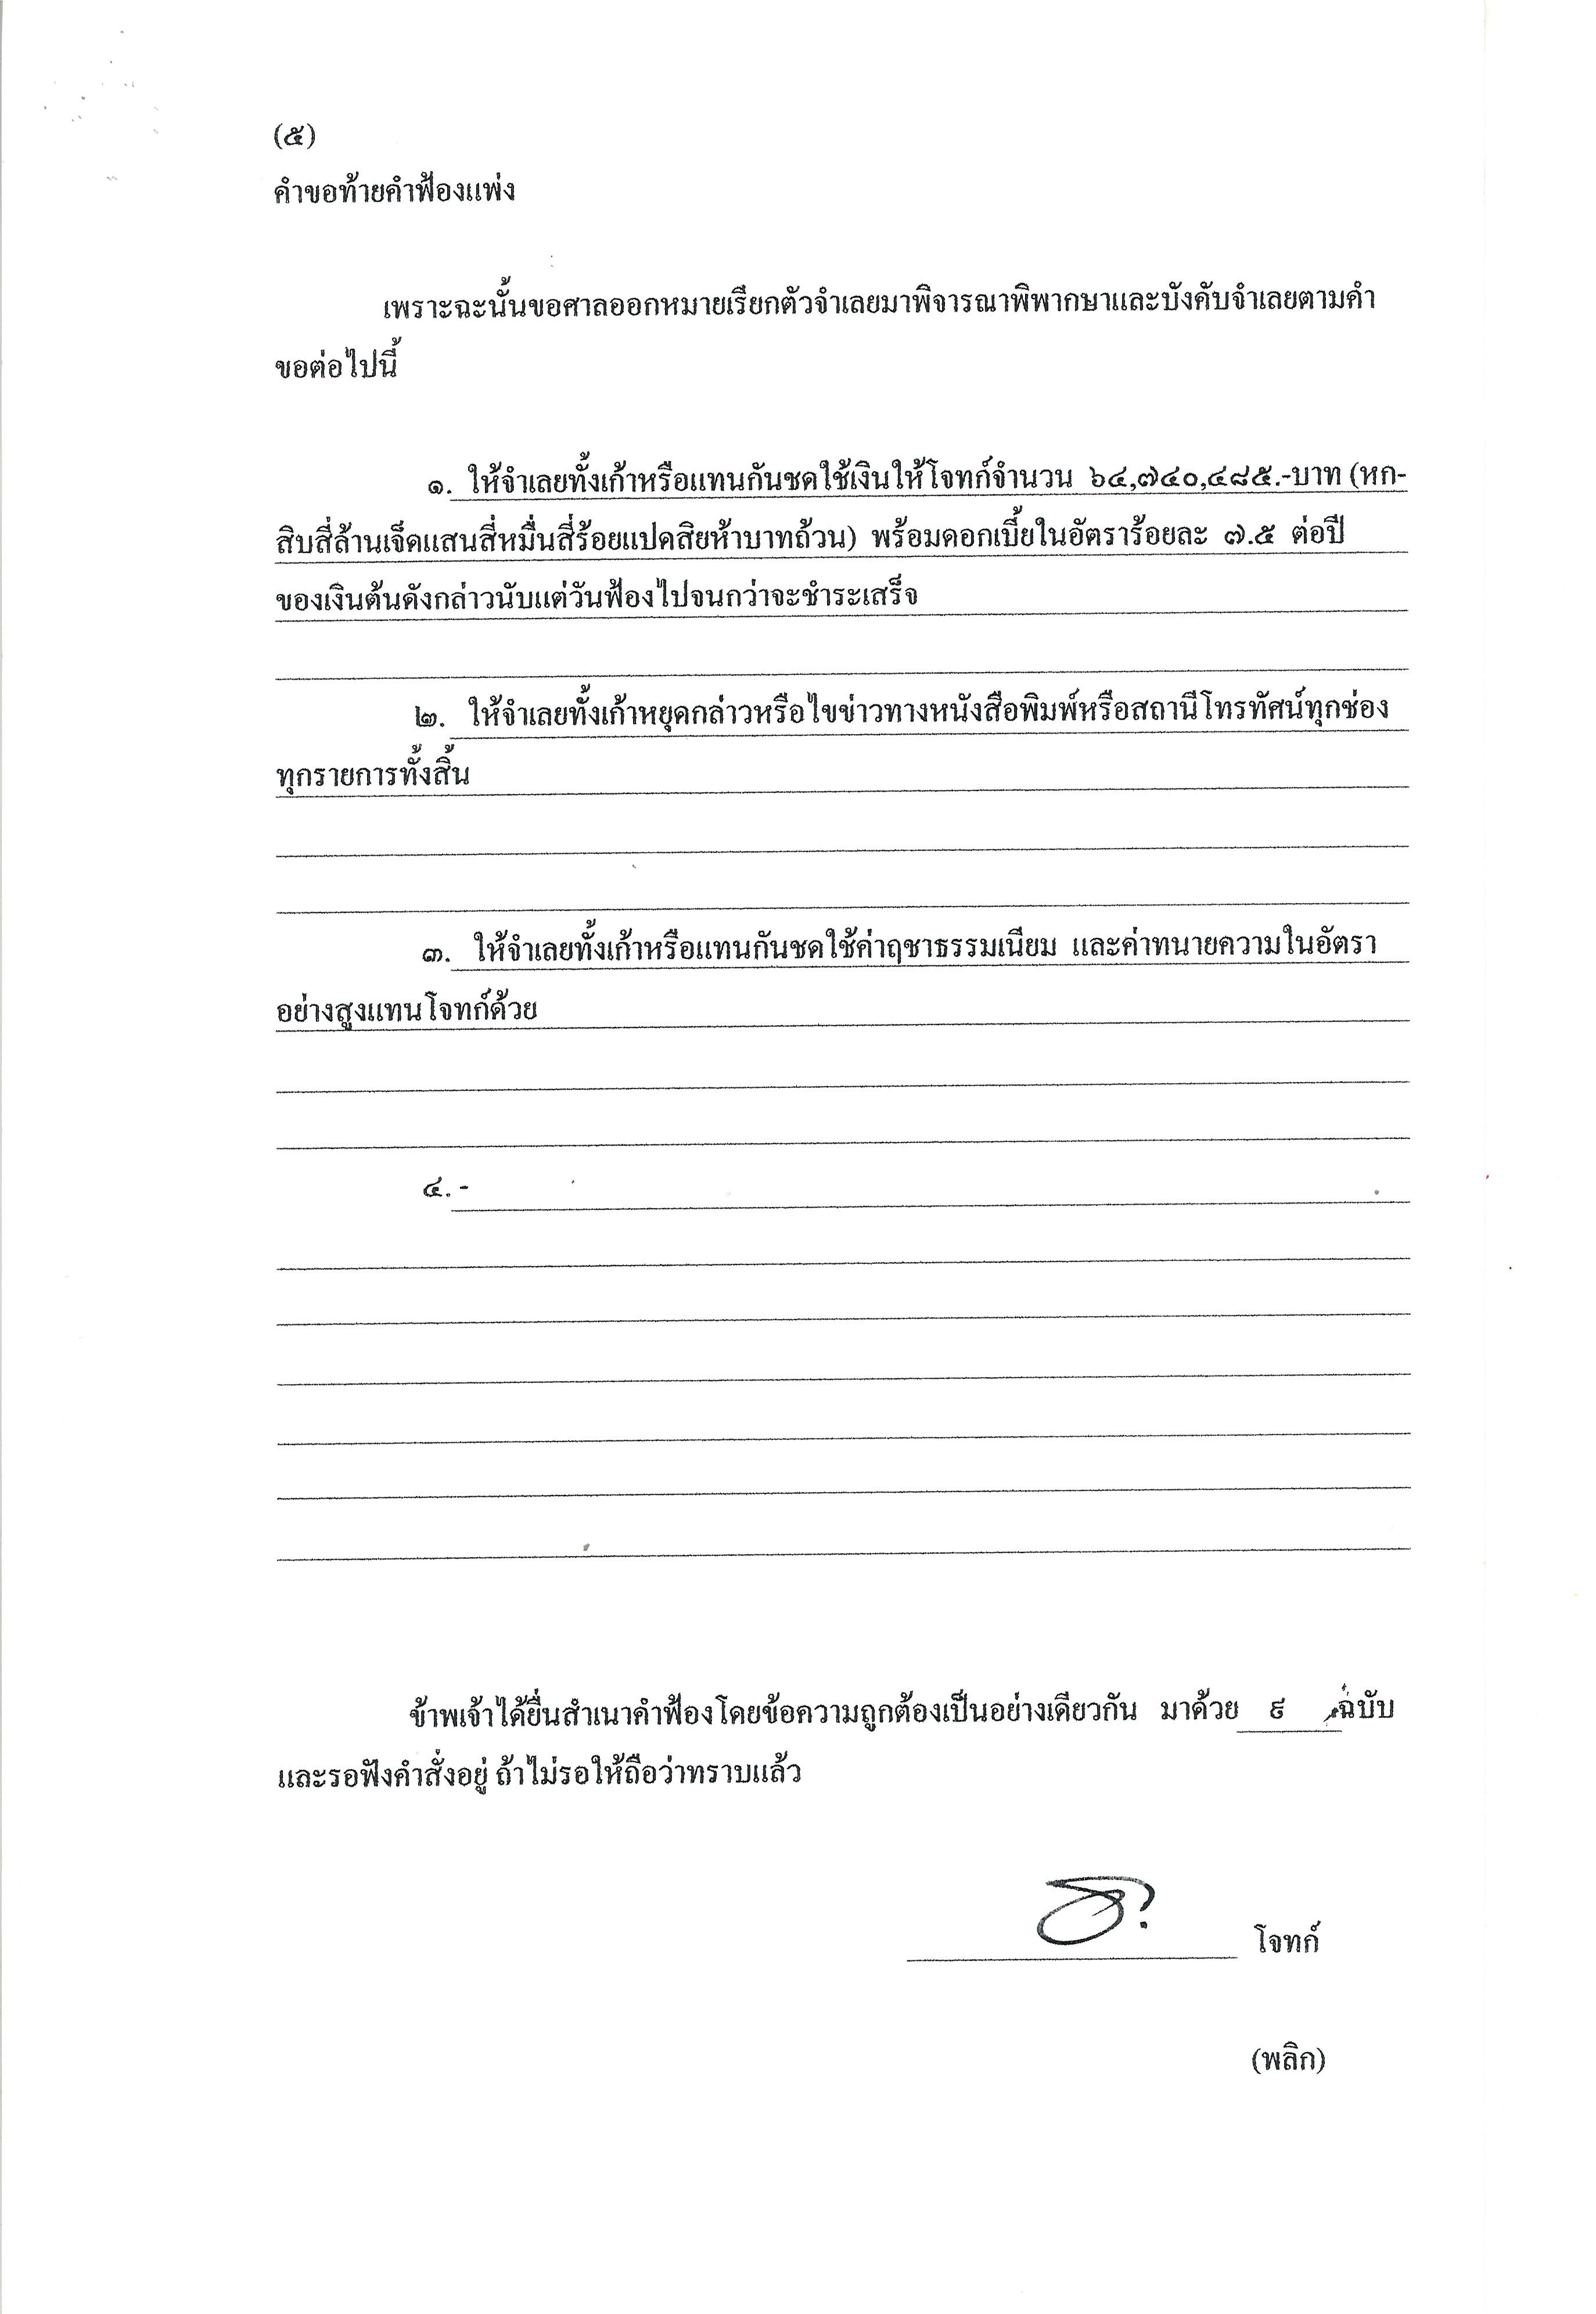 (๕)
คำขอท้ายคำฟ้องแพ่ง
เพราะฉะนั้นขอศาลออกหมายเรียกตัวจำเลยมาพิจารณาพิพากษาและบังคับจำเลยตามคำ
ขอต่อไปนี้
๑. ให้จำเลยทั้งเก้าหรือแทนกันชดใช้เงินให้โจทก์จำนวน ๖๔,๗๔๐,๔๘๕.-บาท (หก-
สิบสี่ล้านเจ็ดแสนสี่หมื่นสี่ร้อยแปดสิยห้าบาทถ้วน) พร้อมดอกเบี้ยในอัตราร้อยละ ๗.๕ ต่อปี
ของเงินต้นดังกล่าวนับแต่วันฟ้องไปจนกว่าจะชำระเสร็จ
๒. ให้จำเลยทั้งเก้าหยุดกล่าวหรือไขข่าวทางหนังสือพิมพ์หรือสถานีโทรทัศน์ทุกช่อง
ทุกรายการทั้งสิ้น
๓. ให้จำเลยทั้งเก้าหรือแทนกันชดใช้ค่าฤชาธรรมเนียม และค่าทนายความในอัตรา
อย่างสูงแทนโจทก์ด้วย
๔. -
ข้าพเจ้าได้ยื่นสำเนาคำฟ้องโดยข้อความถูกต้องเป็นอย่างเดียวกัน มาด้วย ๙ ฉบับ
และรอฟังคำสั่งอยู่ ถ้าไม่รอให้ถือว่าทราบแล้ว
โจทก์
(พลิก)